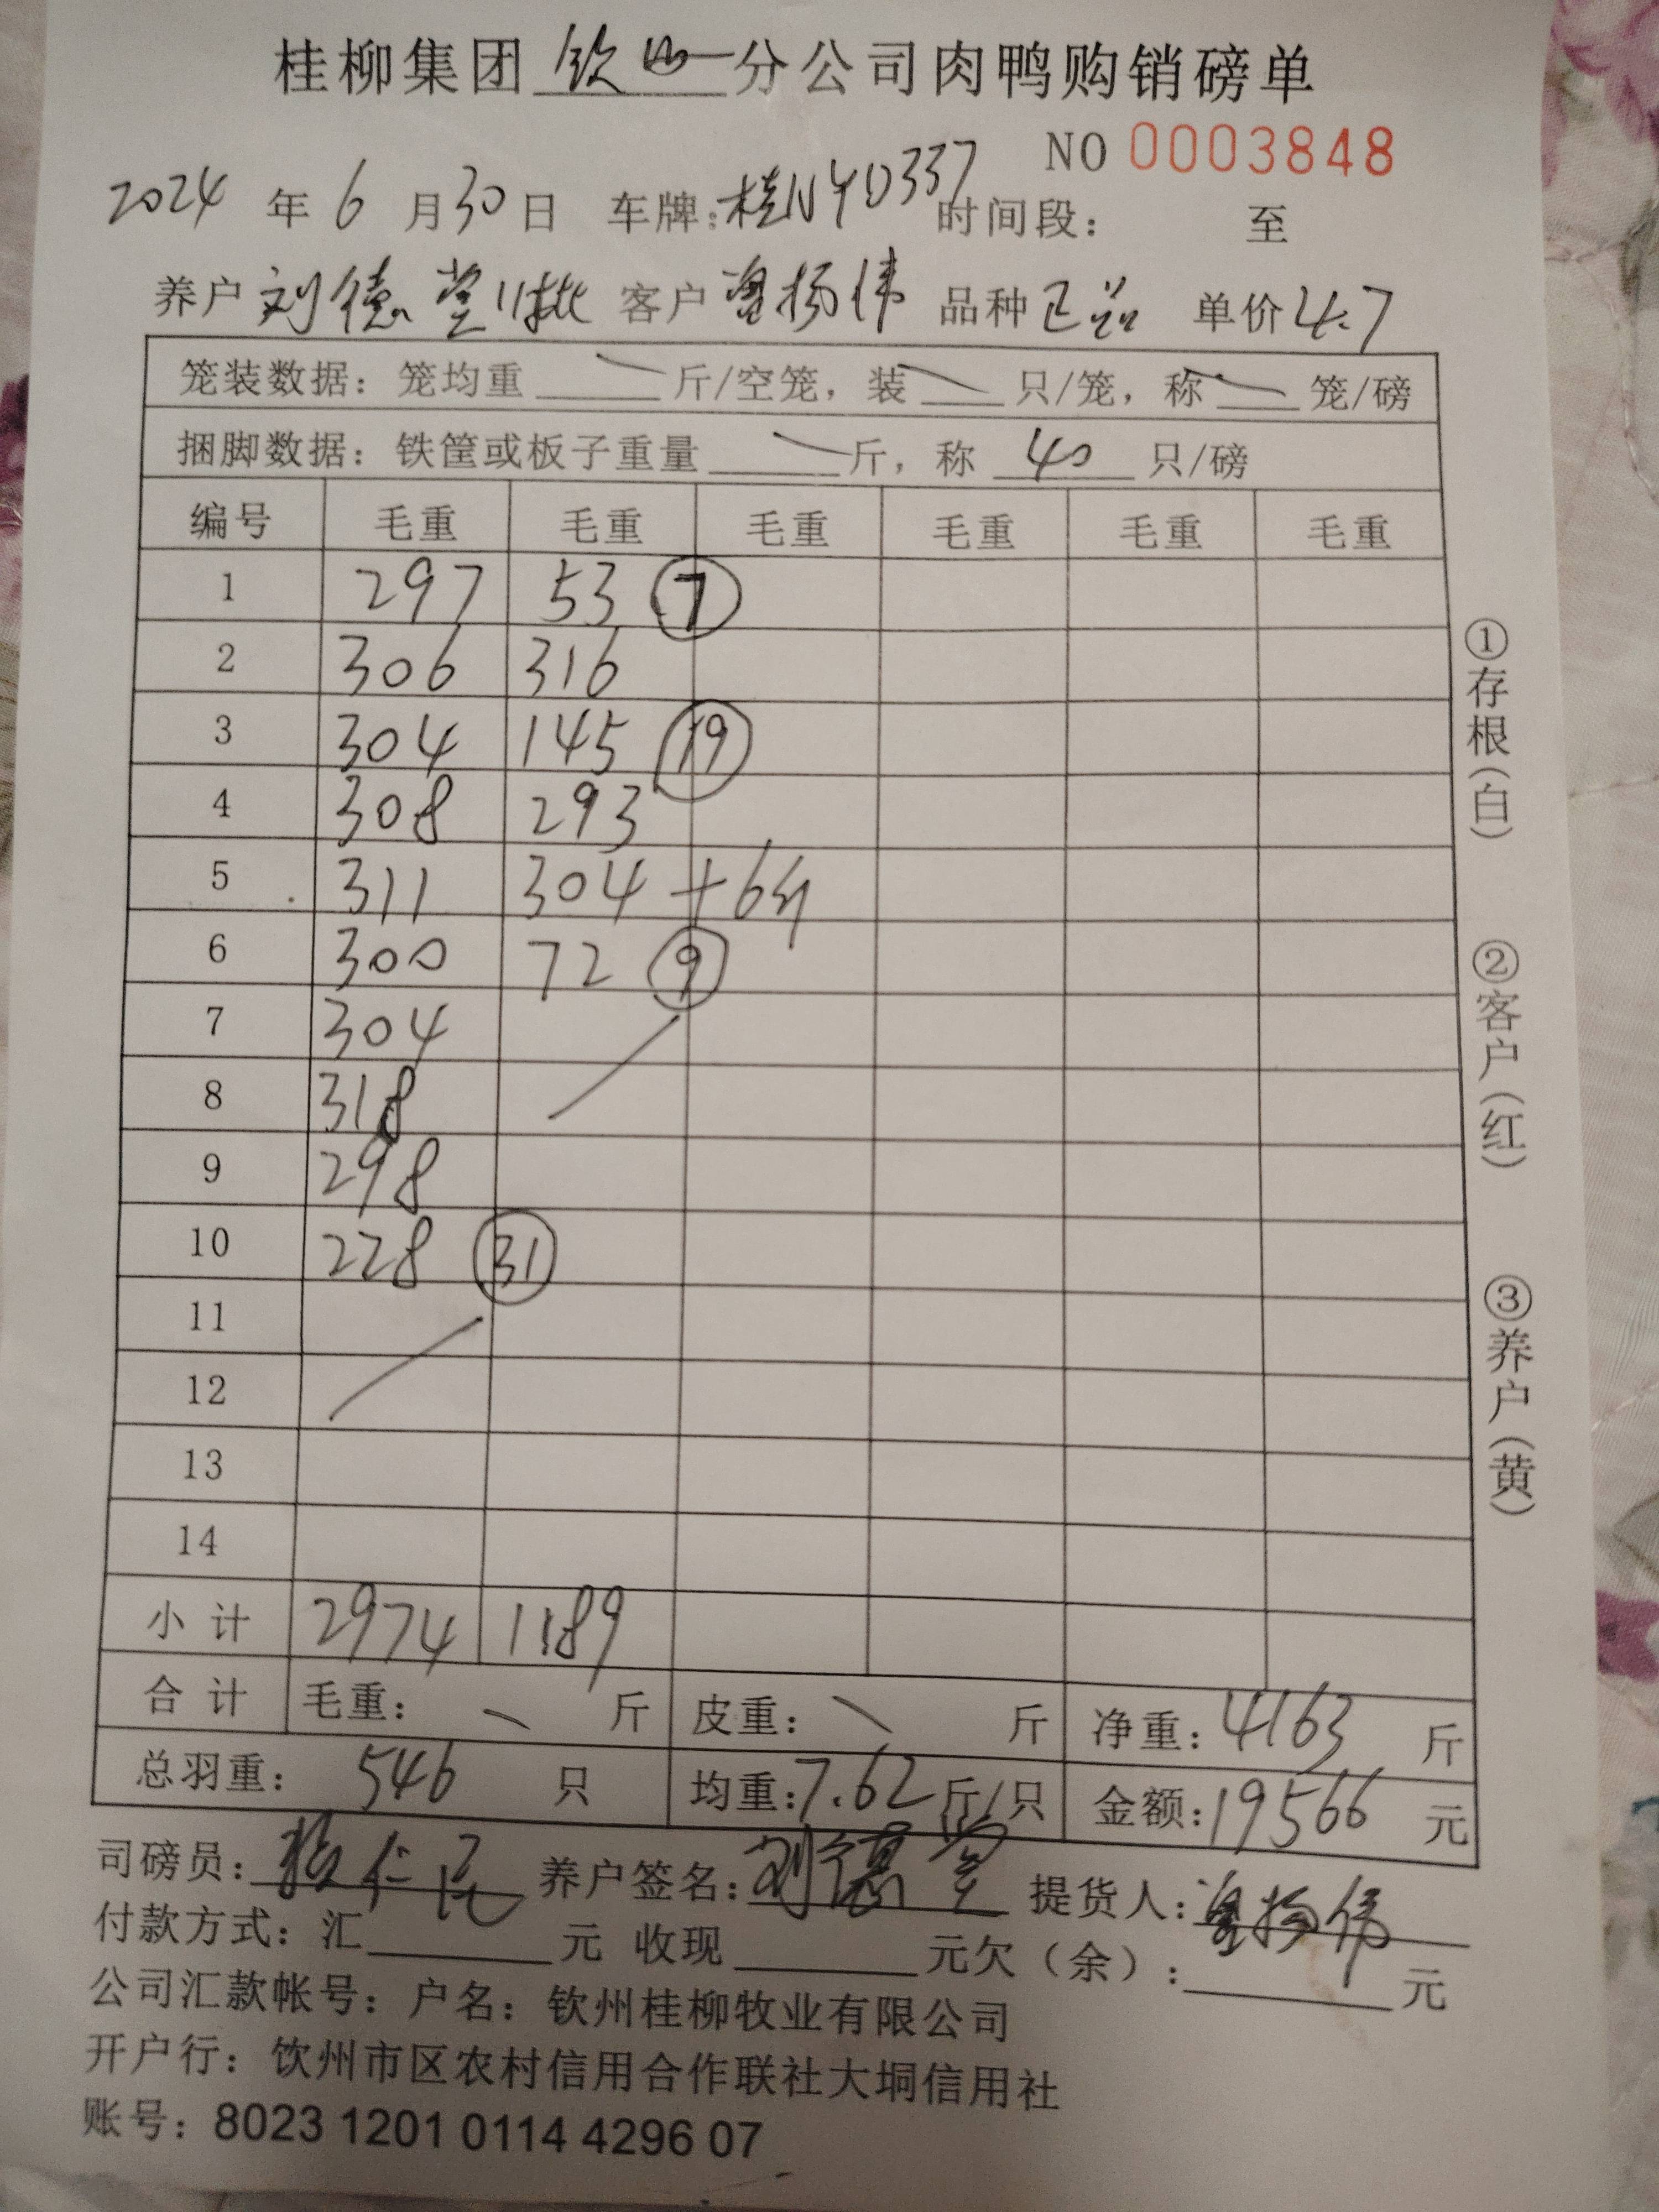 桂柳集团 钦州 分公司肉鸭购销磅单
NO 0003848
2024 年 6 月 30 日 车牌：桂NYD337 时间段： 至
养户 刘德堂11批 客户 扬伟 品种 正品 单价 4.7
笼装数据：笼均重 斤/空笼，装 只/笼，称 笼/磅
捆脚数据：铁筐或板子重量 斤，称 40 只/磅
编号 毛重 毛重 毛重 毛重 毛重 毛重
1 297 53 ⑦
2 306 316
3 304 145 ⑲
4 308 293
5 311 304 +6斤
6 300 72 ⑨
7 304
8 318
9 298
10 228 ㉛
11
12
13
14
小计 2974 1189
合计 毛重： 斤 皮重： 斤 净重：4163 斤
总羽重： 546 只 均重：7.62 斤/只 金额：19566 元
司磅员： 养户签名：刘德堂 提货人：扬伟
付款方式：汇 元 收现 元欠（余）： 元
公司汇款帐号：户名：钦州桂柳牧业有限公司
开户行：钦州市区农村信用合作联社大垌信用社
账号：8023 1201 0114 4296 07
①存根（白）
②客户（红）
③养户（黄）